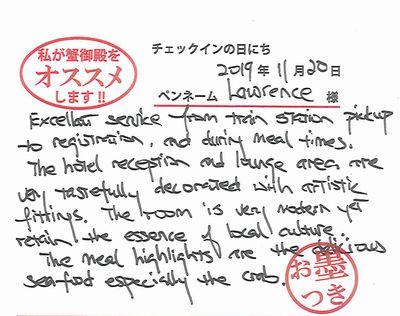 私が蟹御殿を
オススメ
します!!
チェックインの日にち
2019年11月20日
ペンネーム Lawrence 様
Excellent service from train station pickup
to registration, and during meal times.
The hotel reception and lounge area are
very tastefully decorated with artistic
fittings. The room is very modern yet
retain the essence of local culture.
The meal highlights are the delicious
seafood especially the crab.
お墨つき